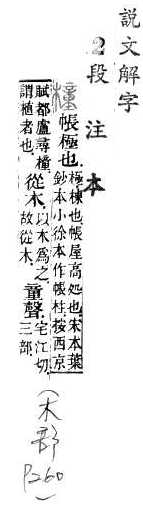 說文解字
2段注本
橦 帳極也. 極棟也. 帳屋高処也. 宋本葉
鈔本小徐本作帳柱. 按西京
賦都盧尋橦. 從木. 以木爲之. 童聲. 宅江切.
謂植者也. 故從木. 三部.
(木部
P260)